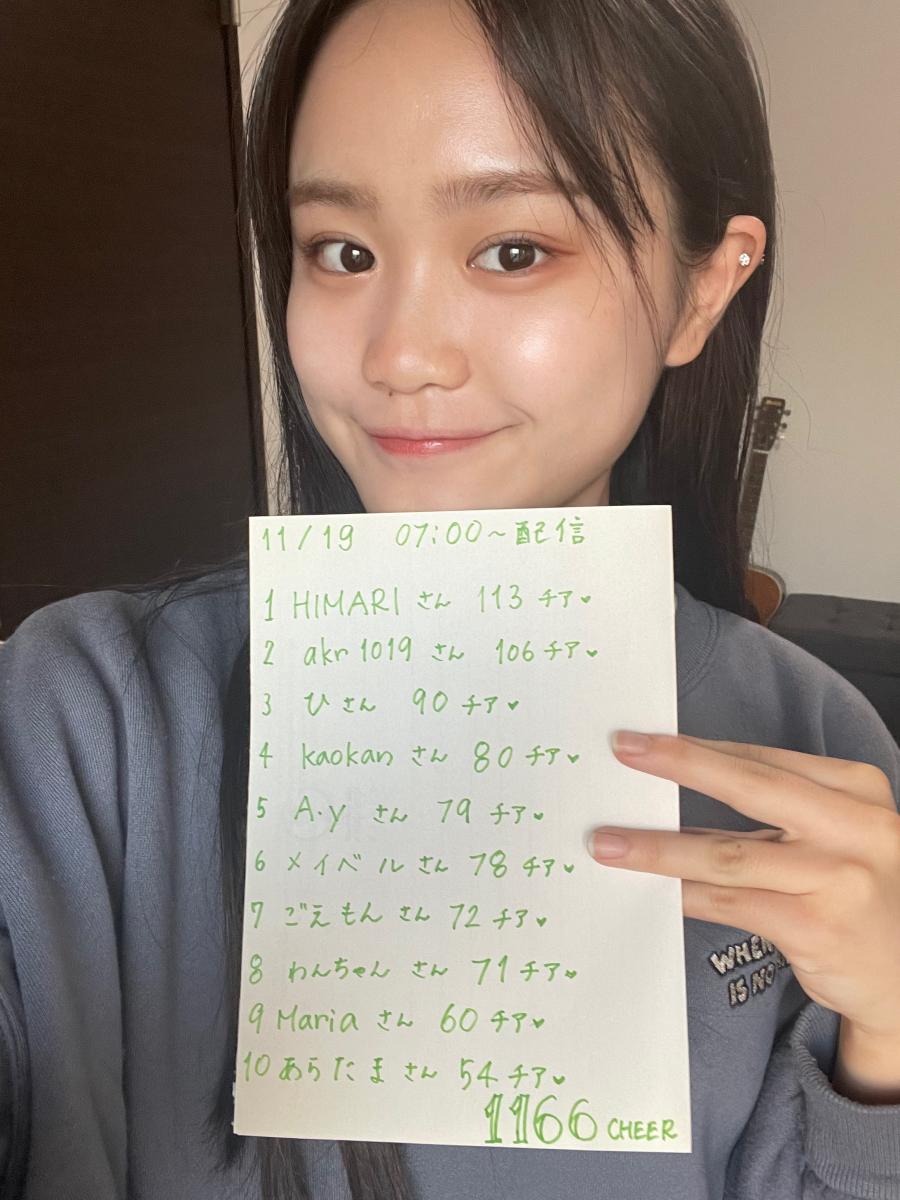 11/19 07:00~配信
1 HIMARI さん 113 チア♥
2 akr1019 さん 106 チア♥
3 ひさん 90 チア♥
4 kaokan さん 80 チア♥
5 A.y さん 79 チア♥
6 メイベルさん 78 チア♥
7 ごえもんさん 72 チア♥
8 わんちゃんさん 71 チア♥
9 Maria さん 60 チア♥
10 あらたまさん 54 チア♥
1166 CHEER
WHEN
IS NO